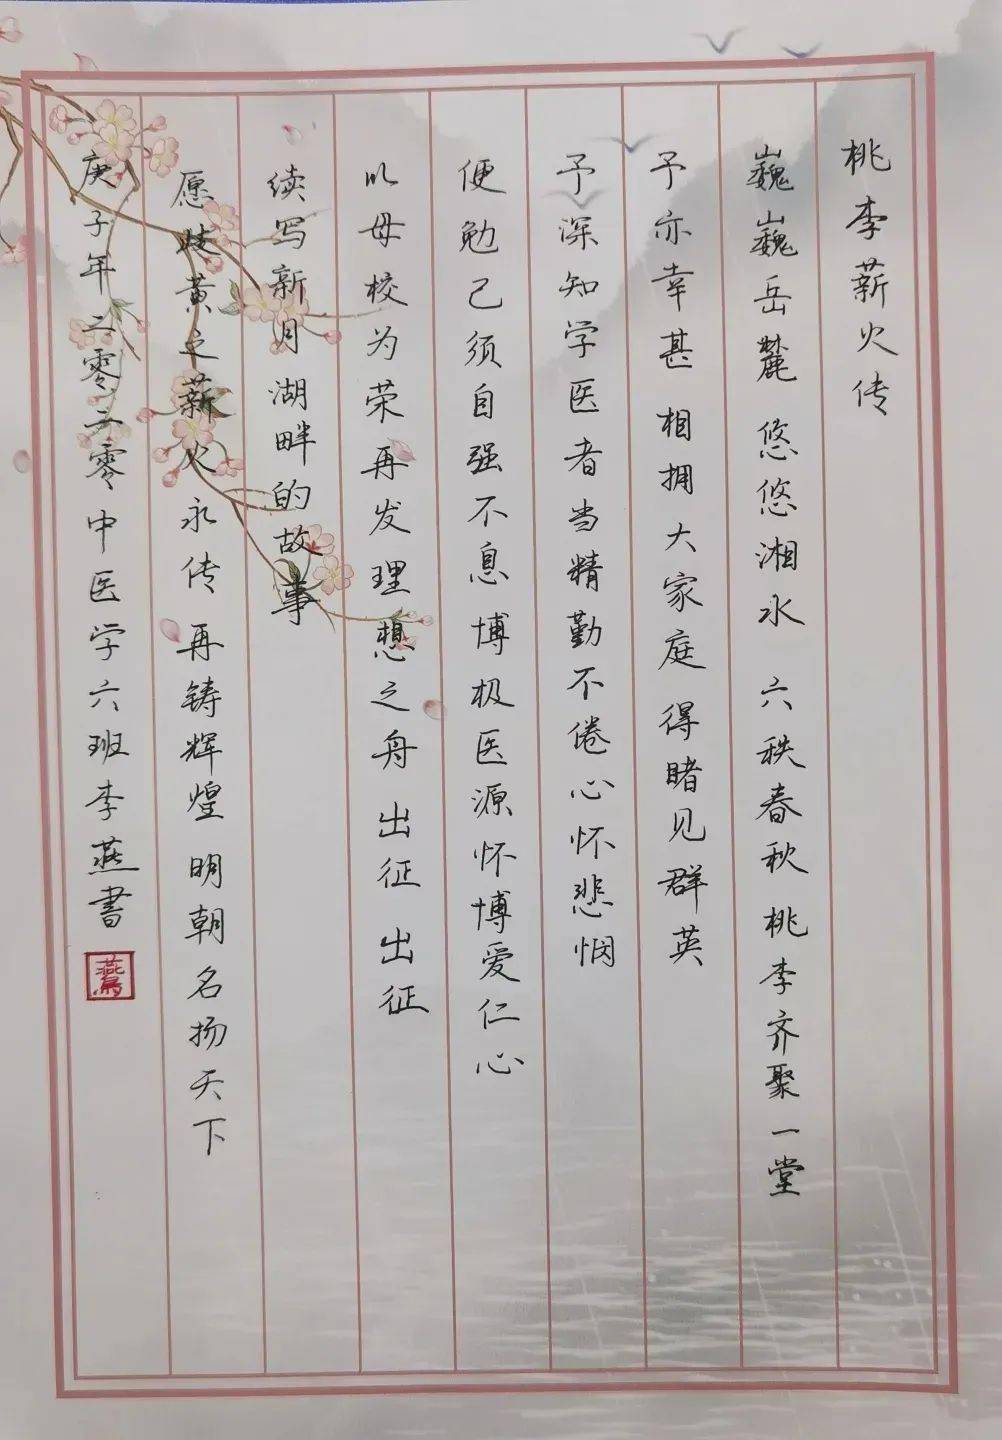 桃李薪火传
巍巍岳麓 悠悠湘水 六秩春秋 桃李齐聚一堂
予亦幸甚 相拥大家庭 得睹见群英
予深知学医者当精勤不倦心怀悲悯
便勉己须自强不息 博极医源怀博爱仁心
以母校为荣再发理想之舟 出征 出征
续写新月湖畔的故事
愿岐黄之薪火永传 再铸辉煌 明朝名扬天下
庚子年二零二零中医学六班李燕書